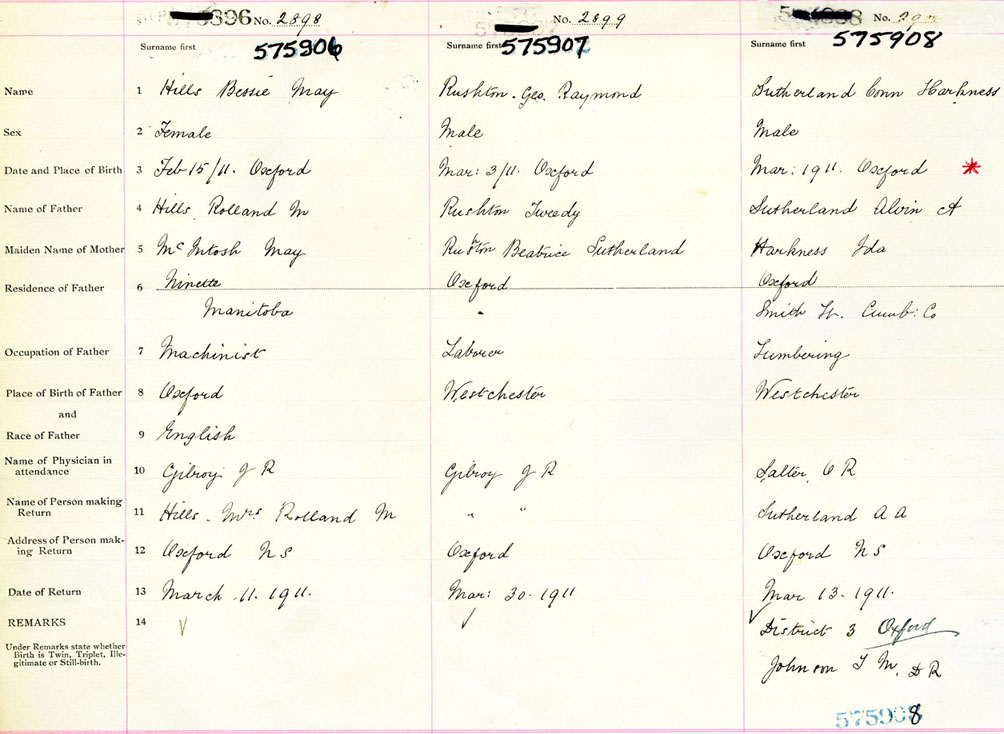 396 No. 2898
No. 2899
No.
Surname first 575906
Surname first 575907
Surname first 575908
Name 1 Hills Bessie May
Rushton. Geo. Raymond
Sutherland Conn Harkness
Sex 2 Female
Male
Male
Date and Place of Birth 3 Feb 15/11. Oxford
Mar: 3/11. Oxford
Mar: 1911. Oxford *
Name of Father 4 Hills, Rolland M
Rushton Tweedy
Sutherland Alvin A
Maiden Name of Mother 5 McIntosh May
Beatrice Sutherland
Harkness Ida
Residence of Father 6 Ninette
Manitoba
Oxford
Oxford
Smith St. Cumb: Co
Occupation of Father 7 Machinist
Laborer
Lumbering
Place of Birth of Father 8 Oxford
Westchester
Westchester
and
Race of Father 9 English
Name of Physician in
attendance 10 Gilroy J R
Gilroy J R
Salter, C R
Name of Person making
Return 11 Hills. Mrs Rolland M
" "
Sutherland A A
Address of Person mak-
ing Return 12 Oxford N S
Oxford
Oxford N S
Date of Return 13 March 11. 1911.
Mar: 30. 1911
Mar 13. 1911.
REMARKS 14 √
√
√ District 3 Oxford
Under Remarks state whether
Birth is Twin, Triplet, Ille-
gitimate or Still-birth.
Johnson T M, D R
575908